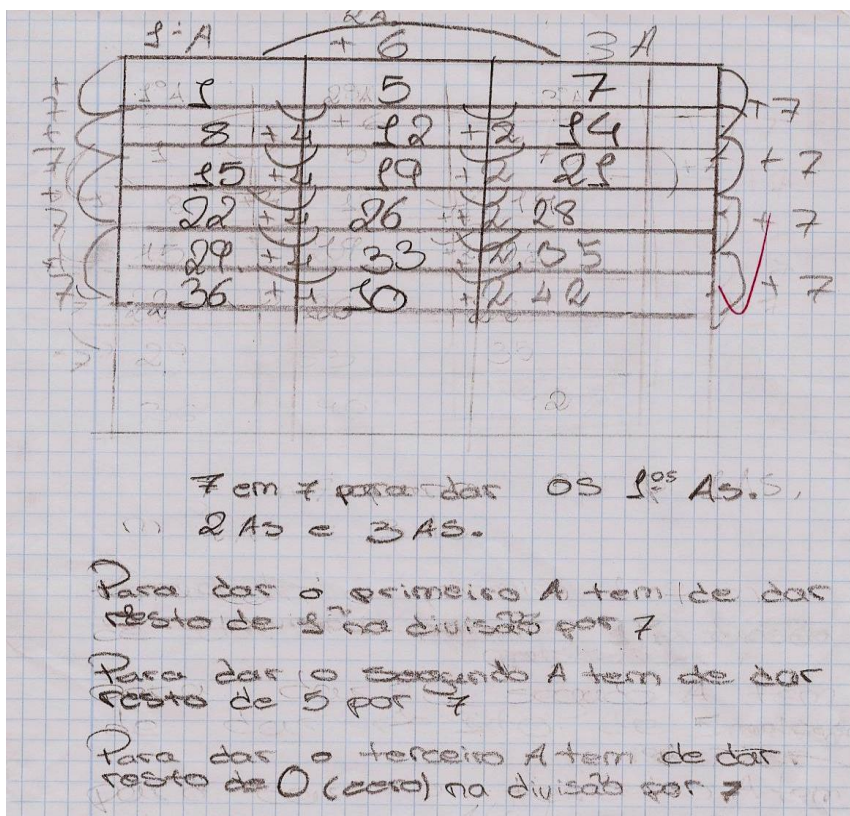 2A
1º A + 6 3 A
1 5 7 +7
8 +4 12 +2 14
15 +4 19 +2 21 + 7
22 +4 26 +2 28 + 7
29 +4 33 +2 35
36 +4 40 +2 42 + 7
7 em 7 para dar os 1ºs As.
2 As e 3 As.
Para dar o primeiro A tem de dar
resto de 1 na divisão por 7
Para dar o segundo A tem de dar
resto de 5 por 7
Para dar o terceiro A tem de dar
resto de 0 (zero) na divisão por 7